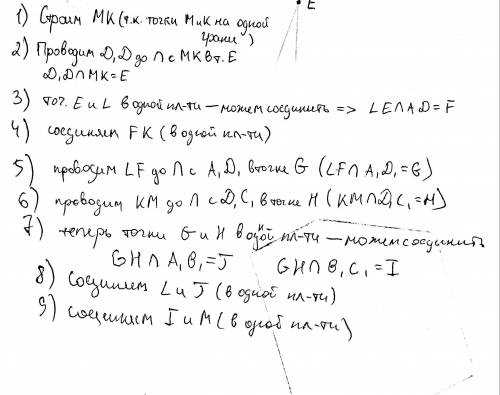 E
1) Строим MK (т.к. точки M и K на одной
грани)
2) Проводим D₁D до ∩ с MK в т. E
D₁D∩MK=E
3) точ. E и L в одной пл-ти – можем соединить => LE∩AD=F
4) соединяем FK (в одной пл-ти)
5) проводим LF до ∩ с A₁D₁ в точке G (LF∩A₁D₁=G)
6) проводим KM до ∩ с D₁C₁ в точке H (KM∩D₁C₁=H)
7) теперь точки G и H в одной пл-ти – можем соединить
GH∩A₁B₁=J GH∩B₁C₁=I
8) Соединяем L и J (в одной пл-ти)
9) Соединяем I и M (в одной пл-ти)